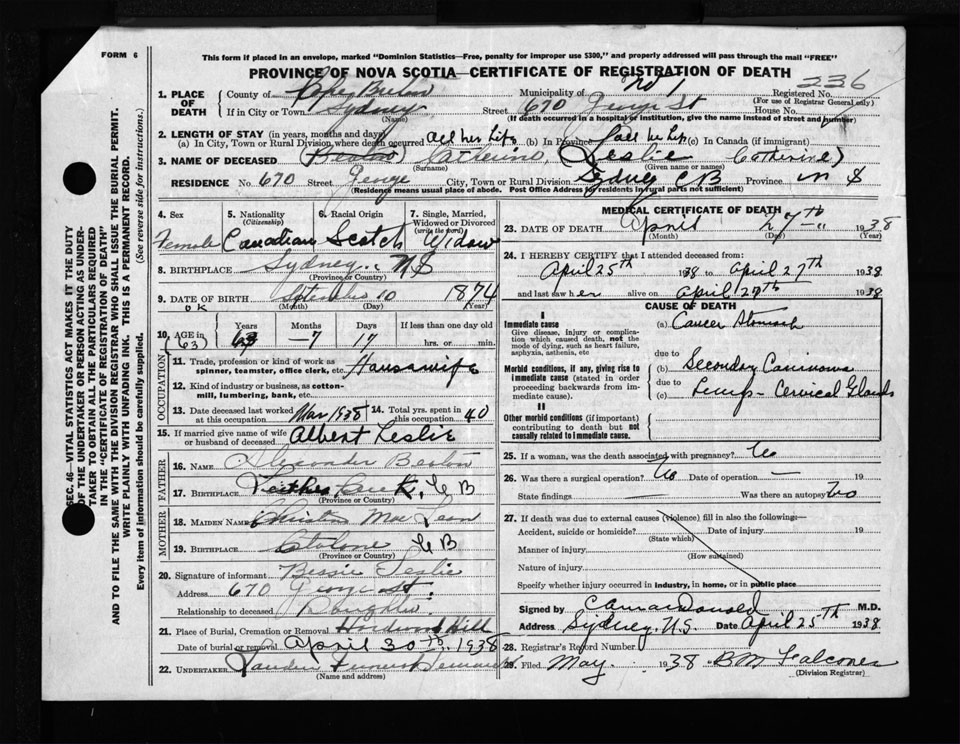 FORM 6
This form if placed in an envelope, marked "Dominion Statistics—Free, penalty for improper use $300," and properly addressed will pass through the mail "FREE"
PROVINCE OF NOVA SCOTIA—CERTIFICATE OF REGISTRATION OF DEATH
236
1. PLACE OF DEATH
County of Cape Breton Municipality of No 1 Registered No.
(For use of Registrar General only)
If in City or Town Sydney Street 670 George St House No.
(Name) (If death occurred in a hospital or institution, give the name instead of street and number)
2. LENGTH OF STAY (in years, months and days)
(a) In City, Town or Rural Division where death occurred all her life (b) In Province all her life (c) In Canada (if immigrant)
3. NAME OF DECEASED Leslie Catherine)
(Surname) (Given name or names)
RESIDENCE No. 670 Street George City, Town or Rural Division Sydney CB Province N S
(Residence means usual place of abode. Post Office Address for residents in rural parts not sufficient)
4. Sex
Female
5. Nationality
(Citizenship)
Canadian
6. Racial Origin
Scotch
7. Single, Married, Widowed or Divorced
(write the word)
Widow
8. BIRTHPLACE Sydney N S
(Province or Country)
9. DATE OF BIRTH September 10 1874
OK (Month) (Day) (Year)
10. AGE in
(63)
Years Months Days If less than one day old
63 7 17 hrs. or min.
OCCUPATION
11. Trade, profession or kind of work as spinner, teamster, office clerk, etc. Housewife
12. Kind of industry or business, as cotton-mill, lumbering, bank, etc.
13. Date deceased last worked at this occupation Mar 1938
14. Total yrs. spent in this occupation 40
15. If married give name of wife or husband of deceased Albert Leslie
FATHER
16. NAME Alexander
17. BIRTHPLACE C B
(Province or Country)
MOTHER
18. MAIDEN NAME Mac Lean
19. BIRTHPLACE Catalone C B
(Province or Country)
20. Signature of informant Bessie Leslie
Address 670 George St.
Relationship to deceased Daughter
21. Place of Burial, Cremation or Removal Hardwood Hill
Date of burial or removal April 30th, 1938
22. UNDERTAKER
(Name and address)
MEDICAL CERTIFICATE OF DEATH
23. DATE OF DEATH April 27th 1938
(Month) (Day) (Year)
24. I HEREBY CERTIFY that I attended deceased from:
April 25th 1938 to April 27th 1938
and last saw her alive on April 27th 1938
CAUSE OF DEATH
I
Immediate cause
Give disease, injury or complication which caused death, not the mode of dying, such as heart failure, asphyxia, asthenia, etc
(a) Cancer Stomach
due to
Morbid conditions, if any, giving rise to immediate cause (stated in order proceeding backwards from immediate cause).
(b) Secondary Carcinoma
due to
(c) Lungs - Cervical Glands
II
Other morbid conditions (if important) contributing to death but not causally related to immediate cause.
25. If a woman, was the death associated with pregnancy? No
26. Was there a surgical operation? No Date of operation — 19
State findings — Was there an autopsy No
27. If death was due to external causes (violence) fill in also the following—
Accident, suicide or homicide? Date of injury 19
(State which)
Manner of injury
(How sustained)
Nature of injury
Specify whether injury occurred in industry, in home, or in public place
Signed by M.D.
Address Sydney N.S. Date April 25th 1938
28. Registrar's Record Number
29. Filed May 1938 B M Falconer
(Division Registrar)
SEC. 46—VITAL STATISTICS ACT MAKES IT THE DUTY
OF THE UNDERTAKER OR PERSON ACTING AS UNDER-
TAKER TO OBTAIN ALL THE PARTICULARS REQUIRED
IN THE "CERTIFICATE OF REGISTRATION OF DEATH"
AND TO FILE THE SAME WITH THE DIVISION REGISTRAR WHO SHALL ISSUE THE BURIAL PERMIT.
WRITE PLAINLY WITH UNFADING INK. THIS IS A PERMANENT RECORD.
Every item of information should be carefully supplied. (See reverse side for instructions.)